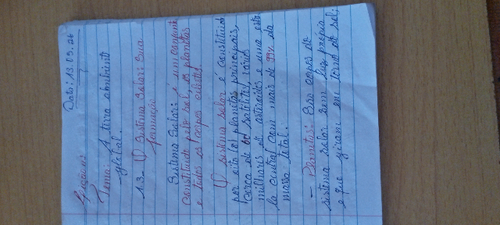 Data: 13.09.24
Geografia
Tema: A terra ambiente
global.
1.3 O Sistema Solar: Sua
formação
Sistema Solar: é um conjunto
constituido pelo sol, os planetas
e todos os corpos
O sistema solar é constituido
por oito (8) planetas principais,
cerca de 60 satelites, vários
milhares de asteroides e uma estre
la central com mais de 99% da
massa total.
- Planetas: São corpos do
sistema solar sem luz própria
e que giram em torno do sol.